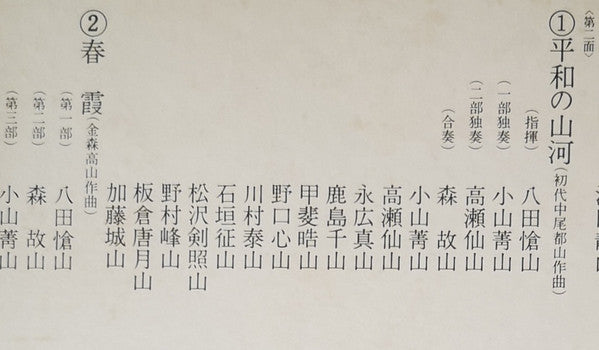 〈第二面〉
①平和の山河(初代中尾都山作曲)
(指揮)八田愴山
(一部独奏)小山菁山
(二部独奏)高瀬仙山
(合奏)森 故山
小山菁山
高瀬仙山
永広真山
鹿島千山
甲斐晧山
野口心山
川村泰山
石垣征山
松沢剣照山
野村峰山
板倉唐月山
加藤城山
②春 霞(金森高山作曲)
(第一部)八田愴山
(第二部)森 故山
(第三部)小山菁山